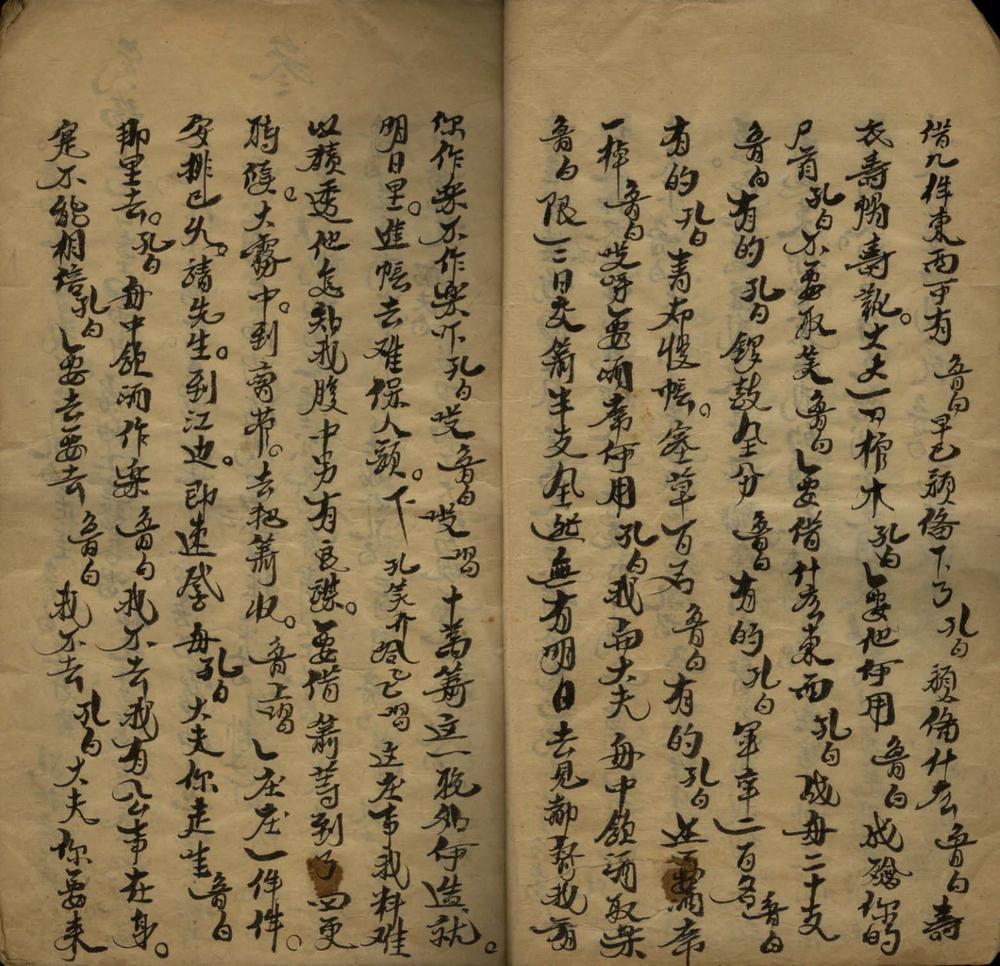 借几件東西可有 魯白 早已預俻下了 孔白 預俻什么 魯白 壽
衣壽帽壽靴丈丈一口棺木 孔白 要他何用 魯白 成殮你的
尸首 孔白 不要取笑 魯白 要借什么東西 孔白 战舟二十支
魯白 有的 孔白 鑼鼓全分 魯白 有的 孔白 軍牢二百名 魯白
有的 孔白 青布慢帳。塞草百石 魯白 有的 孔白 还要酒席
一棹 魯白 哎呀要酒席何用 孔白 我而大夫舟中飲酒取樂
魯白 限三日交箭半支全無有明日去見都督我
你作樂不作樂吓 孔白 哎 魯白 哎 唱 十萬箭这一晚如何造就。
明日里。進帳去难保人頭。下 孔笑介 唱 这庄事我料难
以瞞透他怎知我腹中另有良謀。要借箭等到了四更
時候。大霧中。到曹营。去把箭收。魯上唱 一庄庄一件件。
安排已久。請先生。到江边。即速登舟 孔白 大夫你走哇 魯白
那里去。孔白 舟中飲酒作樂 魯白 我不去我有公事在身。
寔不能相陪 孔白 要去要去 魯白 我不去 孔白 大夫你要来